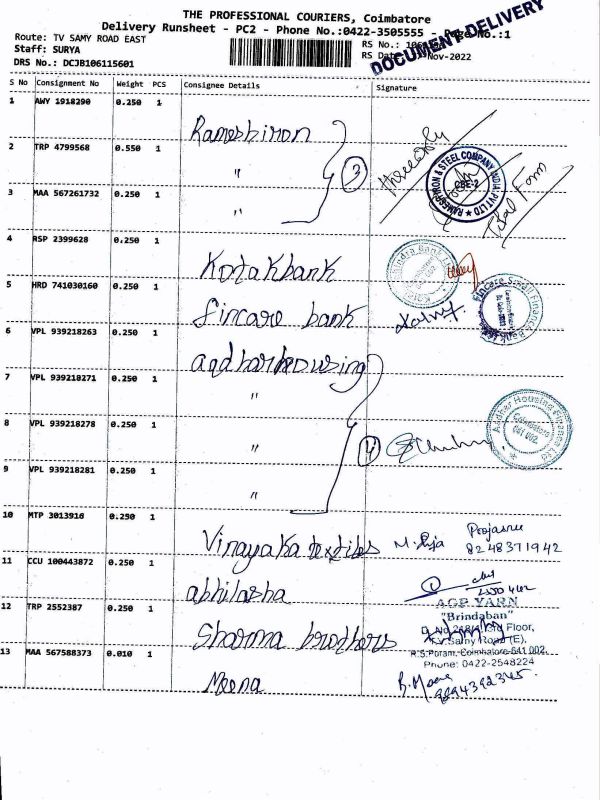 THE PROFESSIONAL COURIERS, Coimbatore
Delivery Runsheet - PC2 - Phone No.:0422-3505555 - Page No.:1
DOCUMENT DELIVERY
Route: TV SAMY ROAD EAST
RS No.:
Staff: SURYA
RS Date: Nov-2022
DRS No.: DCJB106115601
S No Consignment No Weight PCS Consignee Details Signature
1 AWY 1918290 0.250 1 Rameshiron
2 TRP 4799568 0.550 1 "
3 MAA 567261732 0.250 1 "
3
CBE-2
4 RSP 2399628 0.250 1 Kotakbank
5 HRD 741030160 0.250 1 fincare bank
6 VPL 939218263 0.250 1 aadharhousing
7 VPL 939218271 0.250 1 "
8 VPL 939218278 0.250 1 "
4
Aadhar Housing Finance Ltd
Coimbatore
641 002.
9 VPL 939218281 0.250 1 "
10 MTP 3013916 0.250 1 Vinayaka textiles
8248371942
11 CCU 100443872 0.250 1 abhilasha
12 TRP 2552387 0.250 1 Sharma brothers
AGR YARN
"Brindaban"
Floor,
Road (E),
R.S.Puram, Coimbatore-641 002.
Phone: 0422-2548224
13 MAA 567588373 0.010 1 Meena
9894392345.